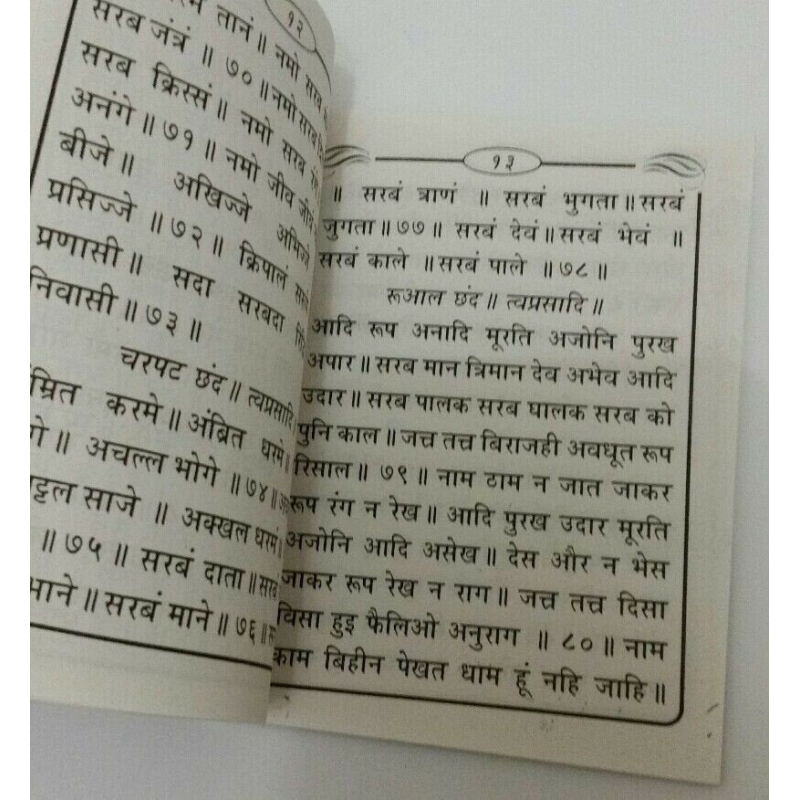 १२
तानं॥ नमो सरब
सरब जंत्रं ॥ ७०॥ नमो सरब
सरब क्रिस्सं॥ नमो सरब
अनंगे॥ ७१॥ नमो जीव जीवं
बीजे॥ अखिज्जे अभिज्जे
प्रसिज्जे ॥ ७२॥ क्रिपालं
प्रणासी॥ सदा सरबदा
निवासी॥ ७३॥
चरपट छंद॥ त्वप्रसादि
करमे॥ अंब्रित धरमे॥
अचल्ल भोगे ॥ ७४॥
साजे ॥ अक्खल धरमं
॥ ७५॥ सरबं दाता॥
माने॥ सरबं माने॥ ७६॥
१३
॥ सरबं त्राणं ॥ सरबं भुगता॥ सरबं
जुगता॥ ७७॥ सरबं देवं॥ सरबं भेवं ॥
सरबं काले ॥ सरबं पाले ॥ ७८॥
रूआल छंद॥ त्वप्रसादि॥
आदि रूप अनादि मूरति अजोनि पुरख
अपार॥ सरब मान त्रिमान देव अभेव आदि
उदार॥ सरब पालक सरब घालक सरब को
पुनि काल॥ जत्त तत्त बिराजही अवधूत रूप
रिसाल॥ ७९॥ नाम ठाम न जात जाकर
रूप रंग न रेख॥ आदि पुरख उदार मूरति
अजोनि आदि असेख॥ देस और न भेस
जाकर रूप रेख न राग॥ जत्त तत्त दिसा
विसा हुइ फैलिओ अनुराग ॥ ८०॥ नाम
काम बिहीन पेखत धाम हूं नहि जाहि॥